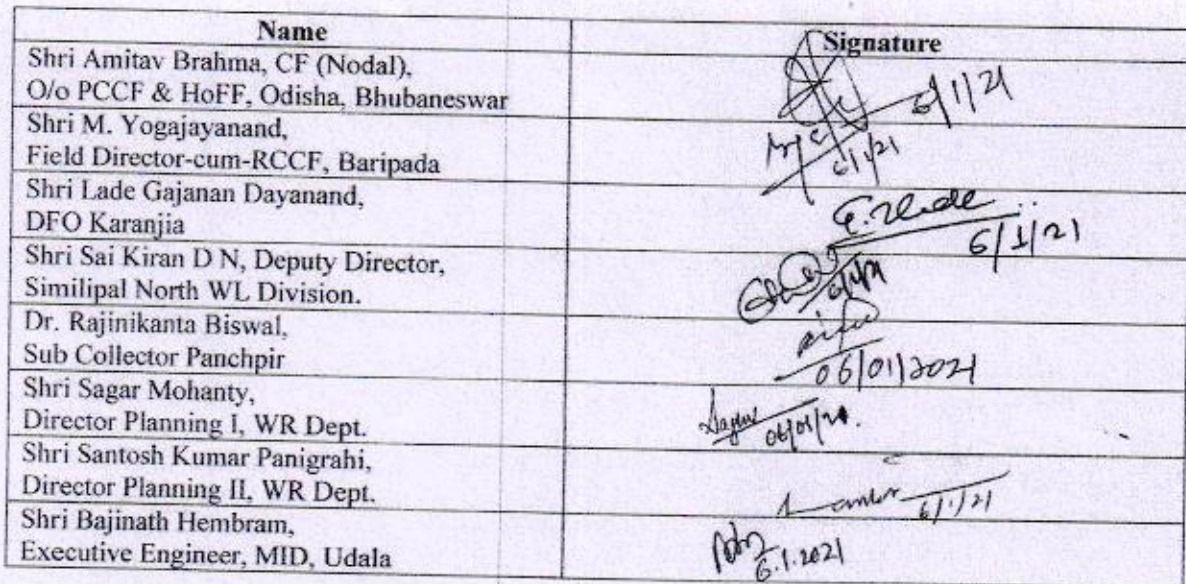 Name Signature
Shri Amitav Brahma, CF (Nodal),
O/o PCCF & HoFF, Odisha, Bhubaneswar
6/1/21
Shri M. Yogajayanand,
Field Director-cum-RCCF, Baripada
6/1/21
Shri Lade Gajanan Dayanand,
DFO Karanjia
6/1/21
Shri Sai Kiran D N, Deputy Director,
Similipal North WL Division.
Dr. Rajinikanta Biswal,
Sub Collector Panchpir
06/01/2021
Shri Sagar Mohanty,
Director Planning I, WR Dept.
Shri Santosh Kumar Panigrahi,
Director Planning II, WR Dept.
6/1/21
Shri Bajinath Hembram,
Executive Engineer, MID, Udala
6.1.2021